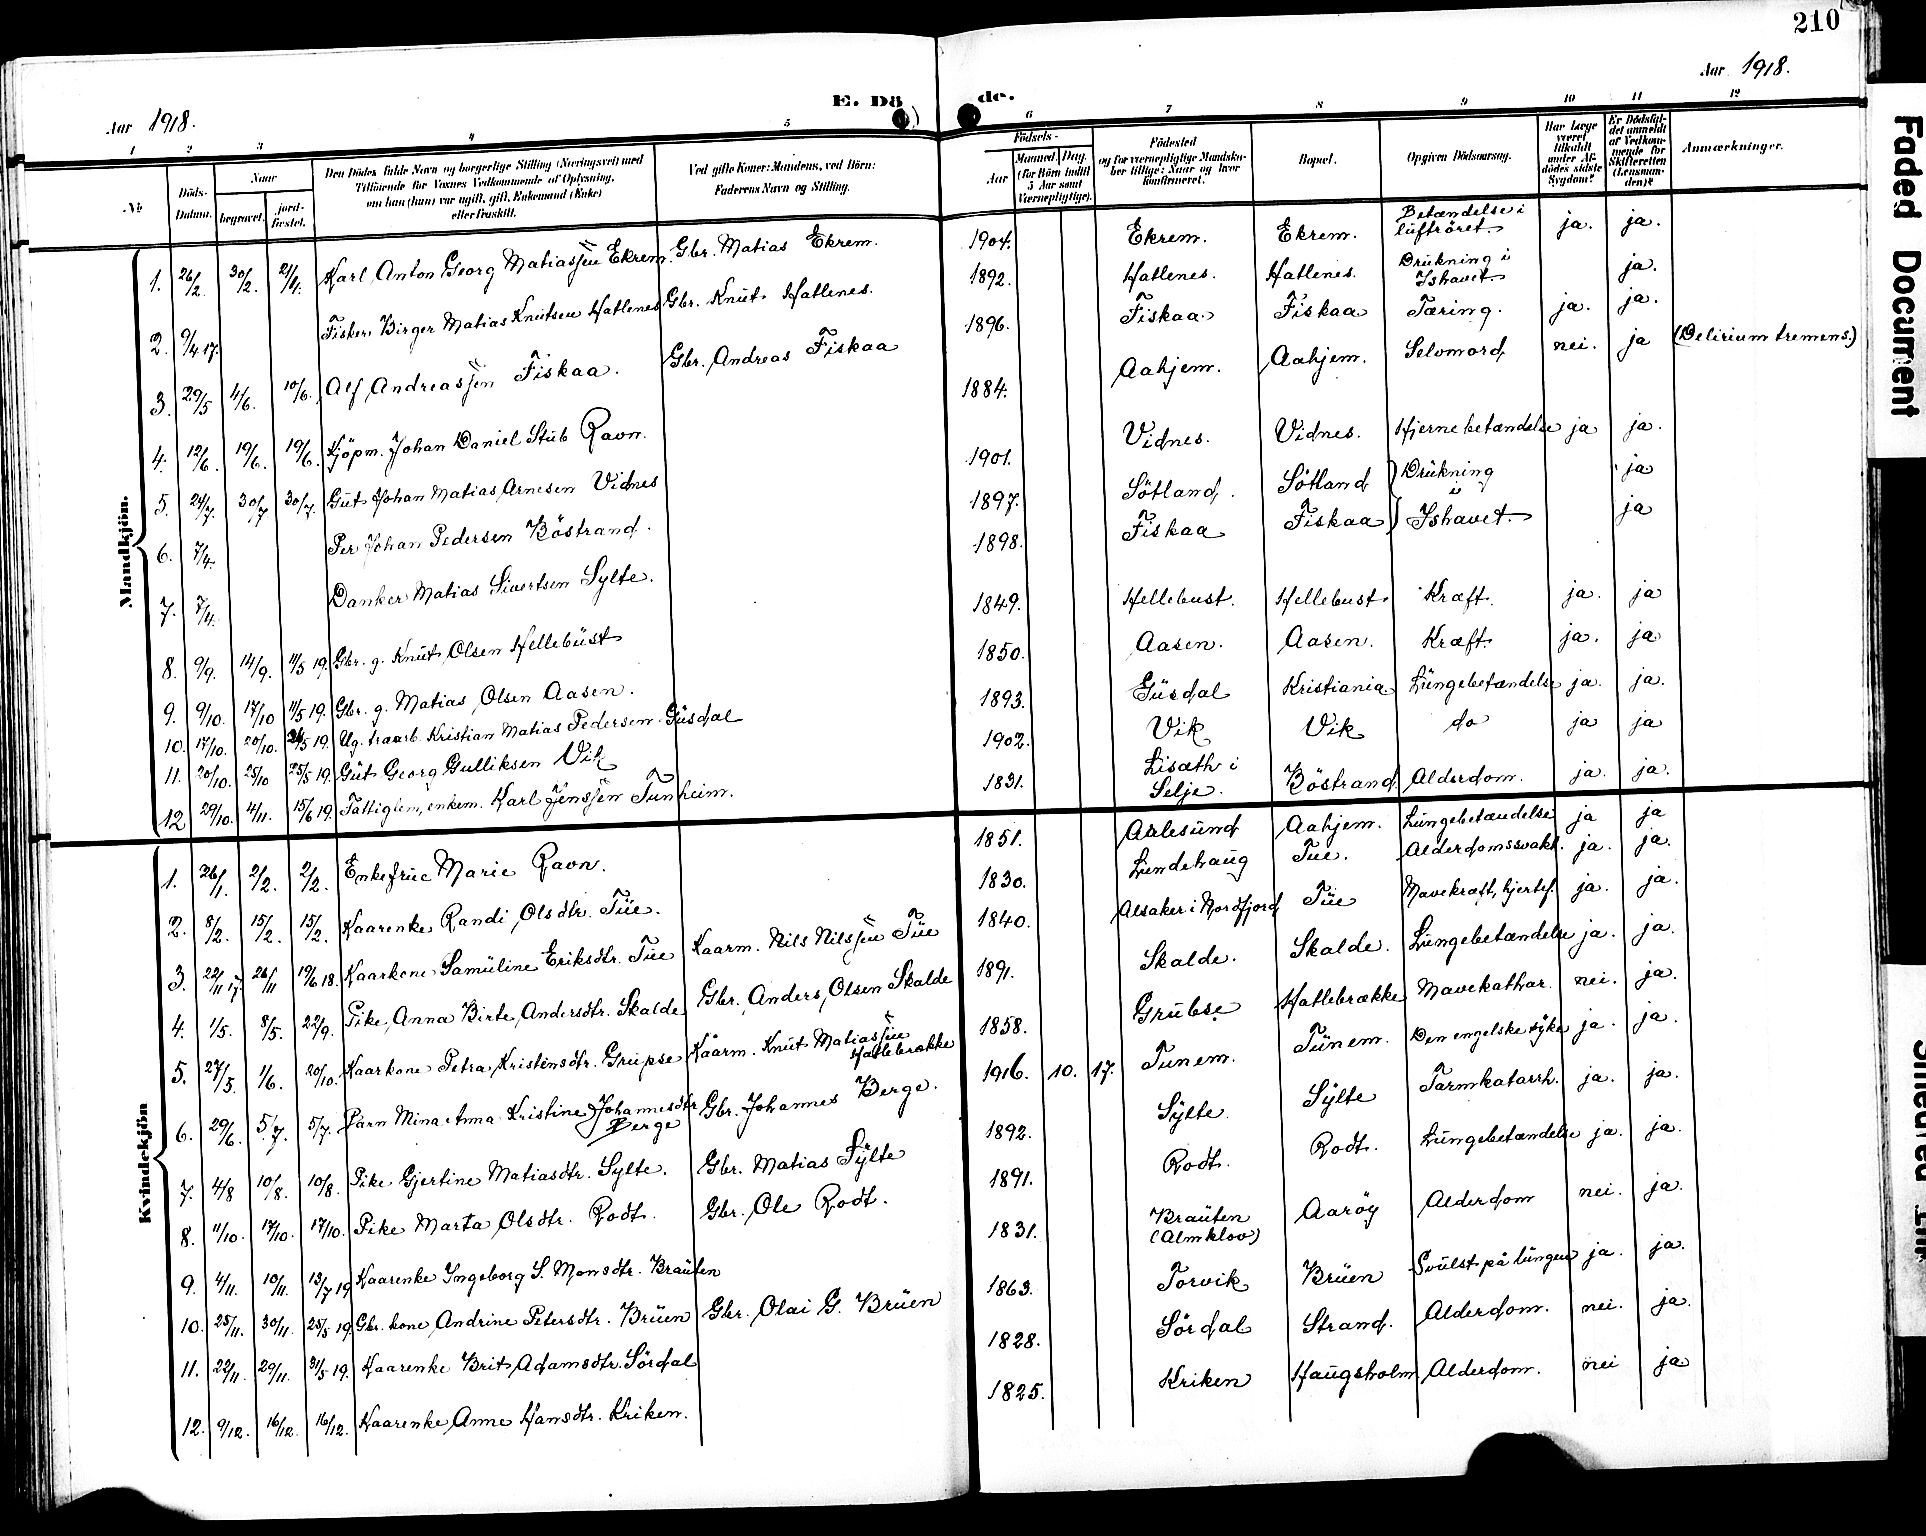 210
Aar 1918.
Aar 1918.
E. Dö
de.
1 2 3 4 5 6 7 8 9 10 11 12
No
Döds-Datum.
Naar
begravet.
jord-fæstet.
Den Dödes fulde Navn og borgerlige Stilling (Næringsvei) med
Tilföiende for Voxnes Vedkommende af Oplysning,
om han (hun) var ugift, gift, Enkemand (Enke)
eller fraskilt.
Ved gifte Koner: Mandens, ved Börn:
Faderens Navn og Stilling.
Födsels-
Aar
Maaned. Dag.
(for Börn indtil
5 Aar samt
Værnepligtige).
Födested
og for værnepligtige Mandska-
ber tillige: Naar og hvor
konfirmeret.
Bopæl.
Opgiven Dödsaarsag.
Har Læge
været
tilkaldt
under Af-
dödes sidste
Sygdom?
Er Dödsfal-
det anmeldt
af Vedkom-
mende for
Skifteretten
(Lensman-
den)?
Anmærkninger.
Mandkjön.
1. 26/2 30/2. 21/4. Karl Anton Georg Matiassen Ekrem Gbr. Matias Ekrem. 1904. Ekrem. Ekrem. Betændelse i luftröret. ja. ja.
2. 9/4 17. Fisker Birger Matias Knutsen Hatlenes Gbr. Knut Hatlenes. 1892. Hatlenes. Hatlenes. Drukning i Ishavet. ja.
3. 29/5 4/6. 10/6. Alf Andreassen Fiskaa. Gbr. Andreas Fiskaa 1896. Fiskaa. Fiskaa Tæring. ja. ja.
4. 12/6. 19/6. 19/6. Kjöpm. Johan Daniel Stub Ravn. 1884. Aahjem. Aahjem. Selvmord nei. ja (Delirium tremens.)
5. 24/7. 30/7 30/7. Gut Johan Matias Arnesen Vidnes 1901. Vidnes. Vidnes. Hjernebetændelse ja ja.
6. 7/4. Per Johan Pedersen Böstrand. 1897. Sötland. Sötland Drukning ja
7. 7/4. Danker Matias Sivertsen Sylte. 1898. Fiskaa Fiskaa i Ishavet. ja
8. 9/9. 14/9. 11/5 19. Gbr. g. Knut Olsen Hellebust 1849. Hellebust. Hellebust. Kræft. ja. ja
9. 9/10. 17/10 11/5 19. Gbr. g. Matias Olsen Aasen. 1850. Aasen. Aasen. Kræft. ja. ja
10. 17/10. 20/10. 5 19. Ug. traarb. Kristian Matias Pedersen Gusdal 1893. Gusdal Kristiania. Lungebetændelse ja ja.
11. 20/10. 25/10 25/5 19. Gut Georg Gulliksen Vik 1902. Vik Vik do ja ja
12 29/10. 4/11. 15/6 19. Fattiglem, enkem. Karl Jenssen Tunheim. 1831. Lisæth i Selje. Böstrand. Alderdom. ja. ja.
Kvindekjön
1. 26/1. 2/2. 2/2. Enkefrue Marie Ravn. 1851. Aalesund Aahjem. Lungebetændelse ja ja
2. 8/2. 15/2. 15/2. Kaarenke Randi Olsdtr. Tue. 1830. Lundehaug Tue. Alderdomssvakh. ja. ja.
3. 22/11 17. 26/11 19/6 18. Kaarkone Samuline Eriksdtr. Tue Kaarm. Nils Nilssen Tue 1840. Alsaker i Nordfjord Tue Mavekræft, hjertef. ja. ja.
4. 1/5. 8/5. 22/9. Pike, Anna Birte, Andersdtr. Skalde Gbr. Anders Olsen Skalde 1891. Skalde. Skalde. Lungebetændelse ja. ja.
5. 27/5. 1/6. 20/10. Kaarkone Petra Kristensdtr. Grupse Kaarm. Knut Matiassen Hatlebrække 1858. Grubse Hatlebrække Mavekathar. nei. ja.
6. 29/6. 5/7. 5/7. Barn Mina Anna Kristine Johannesdtr Berge Gbr. Johannes Berge. 1916. 10. 17. Tunem. Tunem. Den engelske syke ja. ja.
7. 4/8 10/8. 10/8. Pike Gjertine Matiasdtr. Sylte. Gbr. Matias Sylte 1892. Sylte. Sylte Tarmkatarrh. ja. ja.
8. 11/10. 17/10. 17/10. Pike Marta Olsdtr. Rodt. Gbr. Ole Rodt. 1891. Rodt. Rodt. Lungebetændelse ja. ja.
9. 4/11. 10/11. 13/7 19 Kaarenke Ingeborg S. Monsdtr. Brauten 1831. Brauten (Almklov) Aaröy Alderdom nei. ja.
10. 25/11. 30/11. 25/5 19. Gbr. kone Andrine Petersdtr. Bruen Gbr. Olai G. Bruen 1863. Torvik Bruen Svulst på lungen ja. ja.
11. 22/11. 29/11. 31/5 19. Kaarenke Brit Adamsdtr. Sördal 1828. Sördal Strand. Alderdom. nei. ja.
12. 9/12. 16/12. 16/12. Kaarenke Anne Hansdtr. Kriken. 1825. Kriken Haugsholm Alderdom. nei ja
Faded Document